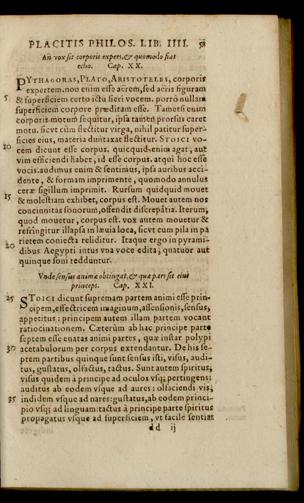 PLACITIS PHILOS. LIB. IIII. 58
An vox sit corporis expers, & quomodo fiat
echo. Cap. XX.
PYTHAGORAS, PLATO, ARISTOTELES, corporis
expertem. non enim esse aërem, sed aëris figuram
5 & superficiem certo ictu fieri vocem. porrò nullam
superficiem corpore præditam esse. Tametsi enim
corporis motum sequitur, ipsa tamen prorsus caret
motu. sicvt cùm flectitur virga, nihil patitur super-
ficies eius, materia duntaxat flectitur. STOICI vo-
10 cem dicunt esse corpus. quicquid enim agat, aut
vim efficiendi habet, id esse corpus. atqui hoc esse
vocis. audimus enim & sentimus, ipsa auribus acci-
dente, & formam imprimente, quomodo annulus
ceræ sigillum imprimit. Rursum quidquid mouet
15 & molestiam exhibet, corpus est. Mouet autem nos
concinnitas sonorum, offendit discrepãtia. Iterum,
quod mouetur, corpus est. vox autem mouetur &
refringitur illapsa in læuia loca, sicvt cum pila in pa
rietem coniecta reliditur. Itaque ergo in pyrami-
20 dibus Aegypti intus vna voce edita, quatuor aut
quinque soni redduntur.
Vnde sensus animæ obtingat, & quæ pars sit eius
princeps. Cap. XXI.
STOICI dicunt supremam partem animi esse prin-
25 cipem, effectricem imaginum, assensionis, sensus,
appetitus: principem autem illam partem vocant
ratiocinationem. Cæterùm ab hac principe parte
septem esse enatas animi partes, quæ instar polypi
30 acetabulorum per corpus extendantur. De his se-
ptem partibus quinque sunt sensus isti, visus, audi-
tus, gustatus, olfactus, tactus. Sunt autem spiritus,
visus quidem à principe ad oculos vsq; pertingens:
auditus ab eodem vsque ad aures: olfaciendi vis,
35 indidem vsque ad nares: gustatus, ab eodem princi-
pio vsq; ad linguam: tactus à principe parte spiritus
propagatus vsque ad superficiem, vt facilè sentiat
dd ij